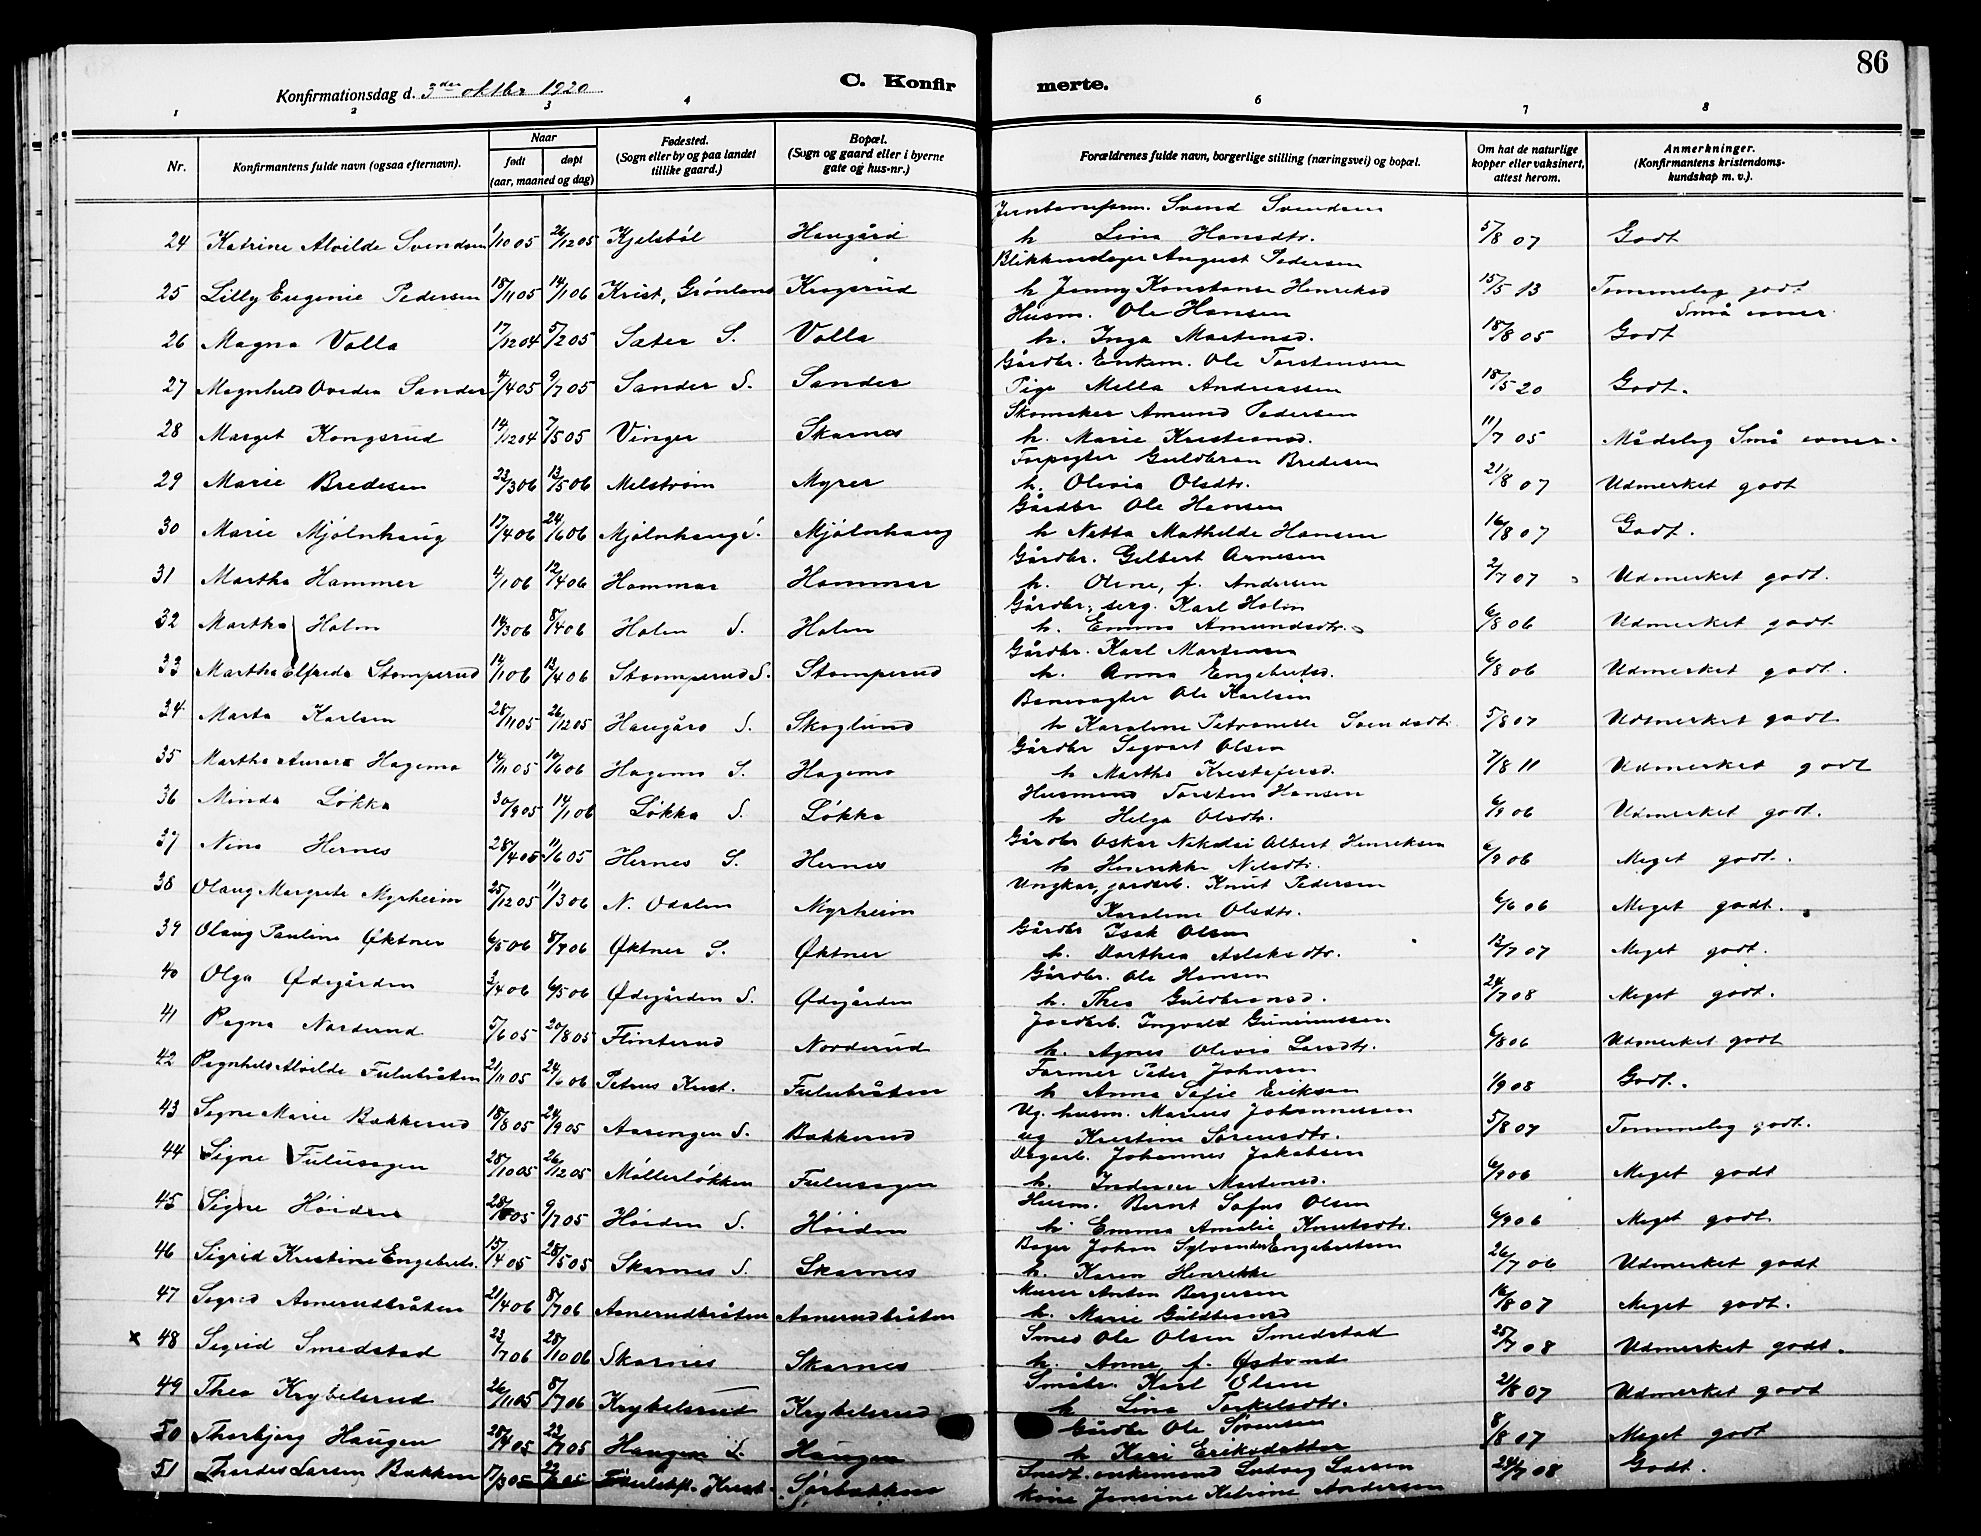 86
Konfirmationsdag d. 3die oktbr 1920
C. Konfirmerte.
1 2 3 4 6 7 8
Nr.
Konfirmantens fulde navn (ogsaa efternavn).
Naar
født døpt
(aar, maaned og dag)
Fødested.
(Sogn eller by og paa landet
tillike gaard.)
Bopæl.
(Sogn og gaard eller i byerne
gate og hus-nr.)
Forældrenes fulde navn, borgerlige stilling (næringsvei) og bopæl.
Om hat de naturlige
kopper eller vaksinert,
attest herom.
Anmerkninger.
(Konfirmantens kristendoms-
kundskap m. v.).
Svend Svendsen
24 Katrine Alvilde Svendsen 1/10 05 26/12 05 Kjelsböl Haugård h Lina Hansdtr. 5/8 07 Godt
Blikkenslager August Pedersen
25 Lilly Eugenie Pedersen 18/11 05 14/1 06 Krist, Grönland Krogsrud h Jenny Konstanse Henriksd 15/5 13 Temmelig godt
Små evner.
Husm. Ole Hansen
26 Magna Volla 17/12 04 5/2 05 Sæter S. Volla h. Inga Martinsd. 18/8 05 Godt
Gårdbr. Enkem. Ole Torstensen
27 Magnhild Ovedia Sander 4/4 05 9/7 05 Sander S. Sander Pige Mella Andreassen 18/5 20 Godt.
Skomaker Amund Pedersen
28 Marget Kongsrud 14/12 04 7/5 05 Vinger Skarnes h. Marie Kristiansd. 11/7 05 Mådelig Små evner.
Forpagter Guldbran Bredesen
29 Marie Bredesen 23/3 06 13/5 06 Melström Myrer h. Olivia Olsdtr. 21/8 07 Udmerket godt
Gårdbr Ole Hansen
30 Marie Mjölnhaug 17/4 06 24/6 06 Mjölnhaug S. Mjölnhaug h Netta Mathilde Hansen 16/8 07 Godt.
Gårdbr. Gilbert Arnesen
31 Martha Hammer 4/1 06 12/4 06 Hammer Hammer h. Oline, f. Andersen 2/7 07 Udmerket godt.
Gårdbr, serg. Karl Holm
32 Martha Holm 14/3 06 8/4 06 Holm S. Holm h. Emma Amundsdtr. 6/8 06 Udmerket godt
Gårdbr. Karl Martinsen
33 Martha Elfrida Stomperud 14/1 06 12/4 06 Stomperud S. Stomperud h. Anna Engebretsd. 6/8 06 Udmerket godt.
Banevogter Ole Karlsen
34 Marta Karlsen 28/11 05 26/12 05 Haugård S. Skoglund h Karoline Petronelle Svendsdtr. 5/8 07 Udmerket godt
Gårdbr Sigvart Olsen
35 Martha Aurora Hagemo 14/11 05 10/6 06 Hagemo S. Hagemo h Martha Kristofersd. 7/8 11 Udmerket godt
Husmand Torsten Hansen
36 Minda Løkka 30/9 05 14/1 06 Løkka S. Løkka h Helga Olsdtr. 6/9 06 Udmerket godt.
Gårdbr Oskar Nikolai Albert Henriksen
37 Nina Hernes 28/4 05 11/6 05 Hernes S. Hernes h Henrikke Nilsdtr. 6/9 06 Meget godt.
Ungkar, jordarb. Knut Pedersen
38 Olaug Margrete Myrheim 25/12 05 11/3 06 N. Odalen Myrheim Karoline Olsdtr. 6/6 06 Meget godt.
Gårdbr Isak Olsen
39 Olaug Pauline Øktner 6/5 06 8/7 06 Øktner S. Øktner h. Dorthea Aslaksdtr. 12/7 07 Meget godt.
Gårdbr. Ole Hansen
40 Olga Ødegården 3/4 06 6/5 06 Ødegården S. Ødegården h. Thea Guldbransd. 24/7 08 Meget godt.
Jordarb. Ingvald
41 Ragna Norderud 5/6 05 20/8 05 Flinterud Norderud h. Agnes Olivia Larsdtr. 6/8 06 Udmerket godt
Farmer Peter Johnsen
42 Ragnhild Alvilde Fulubråten 21/11 05 24/6 06 Petrus Krist. Fulubråten h Anna Sofie Eriksen 1/9 08 Godt.
Ug. husm. Marius Johannessen
43 Signe Marie Bakkerud 18/8 05 24/9 05 Aasengen S. Bakkerud ug Kristine Sørensdtr. 5/8 07 Temmelig godt.
Dagarb. Johannes Jakobsen
44 Signe Fulusagen 28/10 05 26/12 05 Møllerløkken Fulusagen h. Martinsd. 6/9 06 Meget godt
Husm. Bernt Sofus Olsen
45 Signe Höiden 9/7 05 Höiden S. Höiden h. Emma Amalie Knutsdtr. 6/9 06 Meget godt
Bager Johan Sylvander Engebretsen
46 Sigrid Kristine Engebrets. 15/4 05 28/5 05 Skarnes S. Skarnes h. Karen Henrikke 26/7 06 Udmerket godt
Murer Anton Bergersen
47 Sigrid Asnerudbråten 21/4 06 8/7 06 Asnerudbråten Asnerudbråten h. Marie Guldbransd 16/8 07 Meget godt.
Smed Ole Olsen Smedstad
x 48 Sigrid Smedstad 23/7 06 28/10 06 Skarnes Skarnes h. Anne, f. Østvand 25/7 08 Udmerket godt.
Småbr. Karl Olsen
49 Thea Krykelsrud 26/11 05 8/7 06 Krykelsrud Krykelsrud h Lina Torkelsdtr. 21/8 07 Udmerket godt
Gårdbr Ole Sørensen
50 Thorbjørg Haugen 28/4 05 23/7 05 Haugen S. Haugen h Kari Eriksdatter 8/8 07 Meget godt
enkemand Ludvig Larsen
51 Thordis Larsen Bakken Sørbakken kone Jensine Katrine Andersen 24/7 08 Godt.